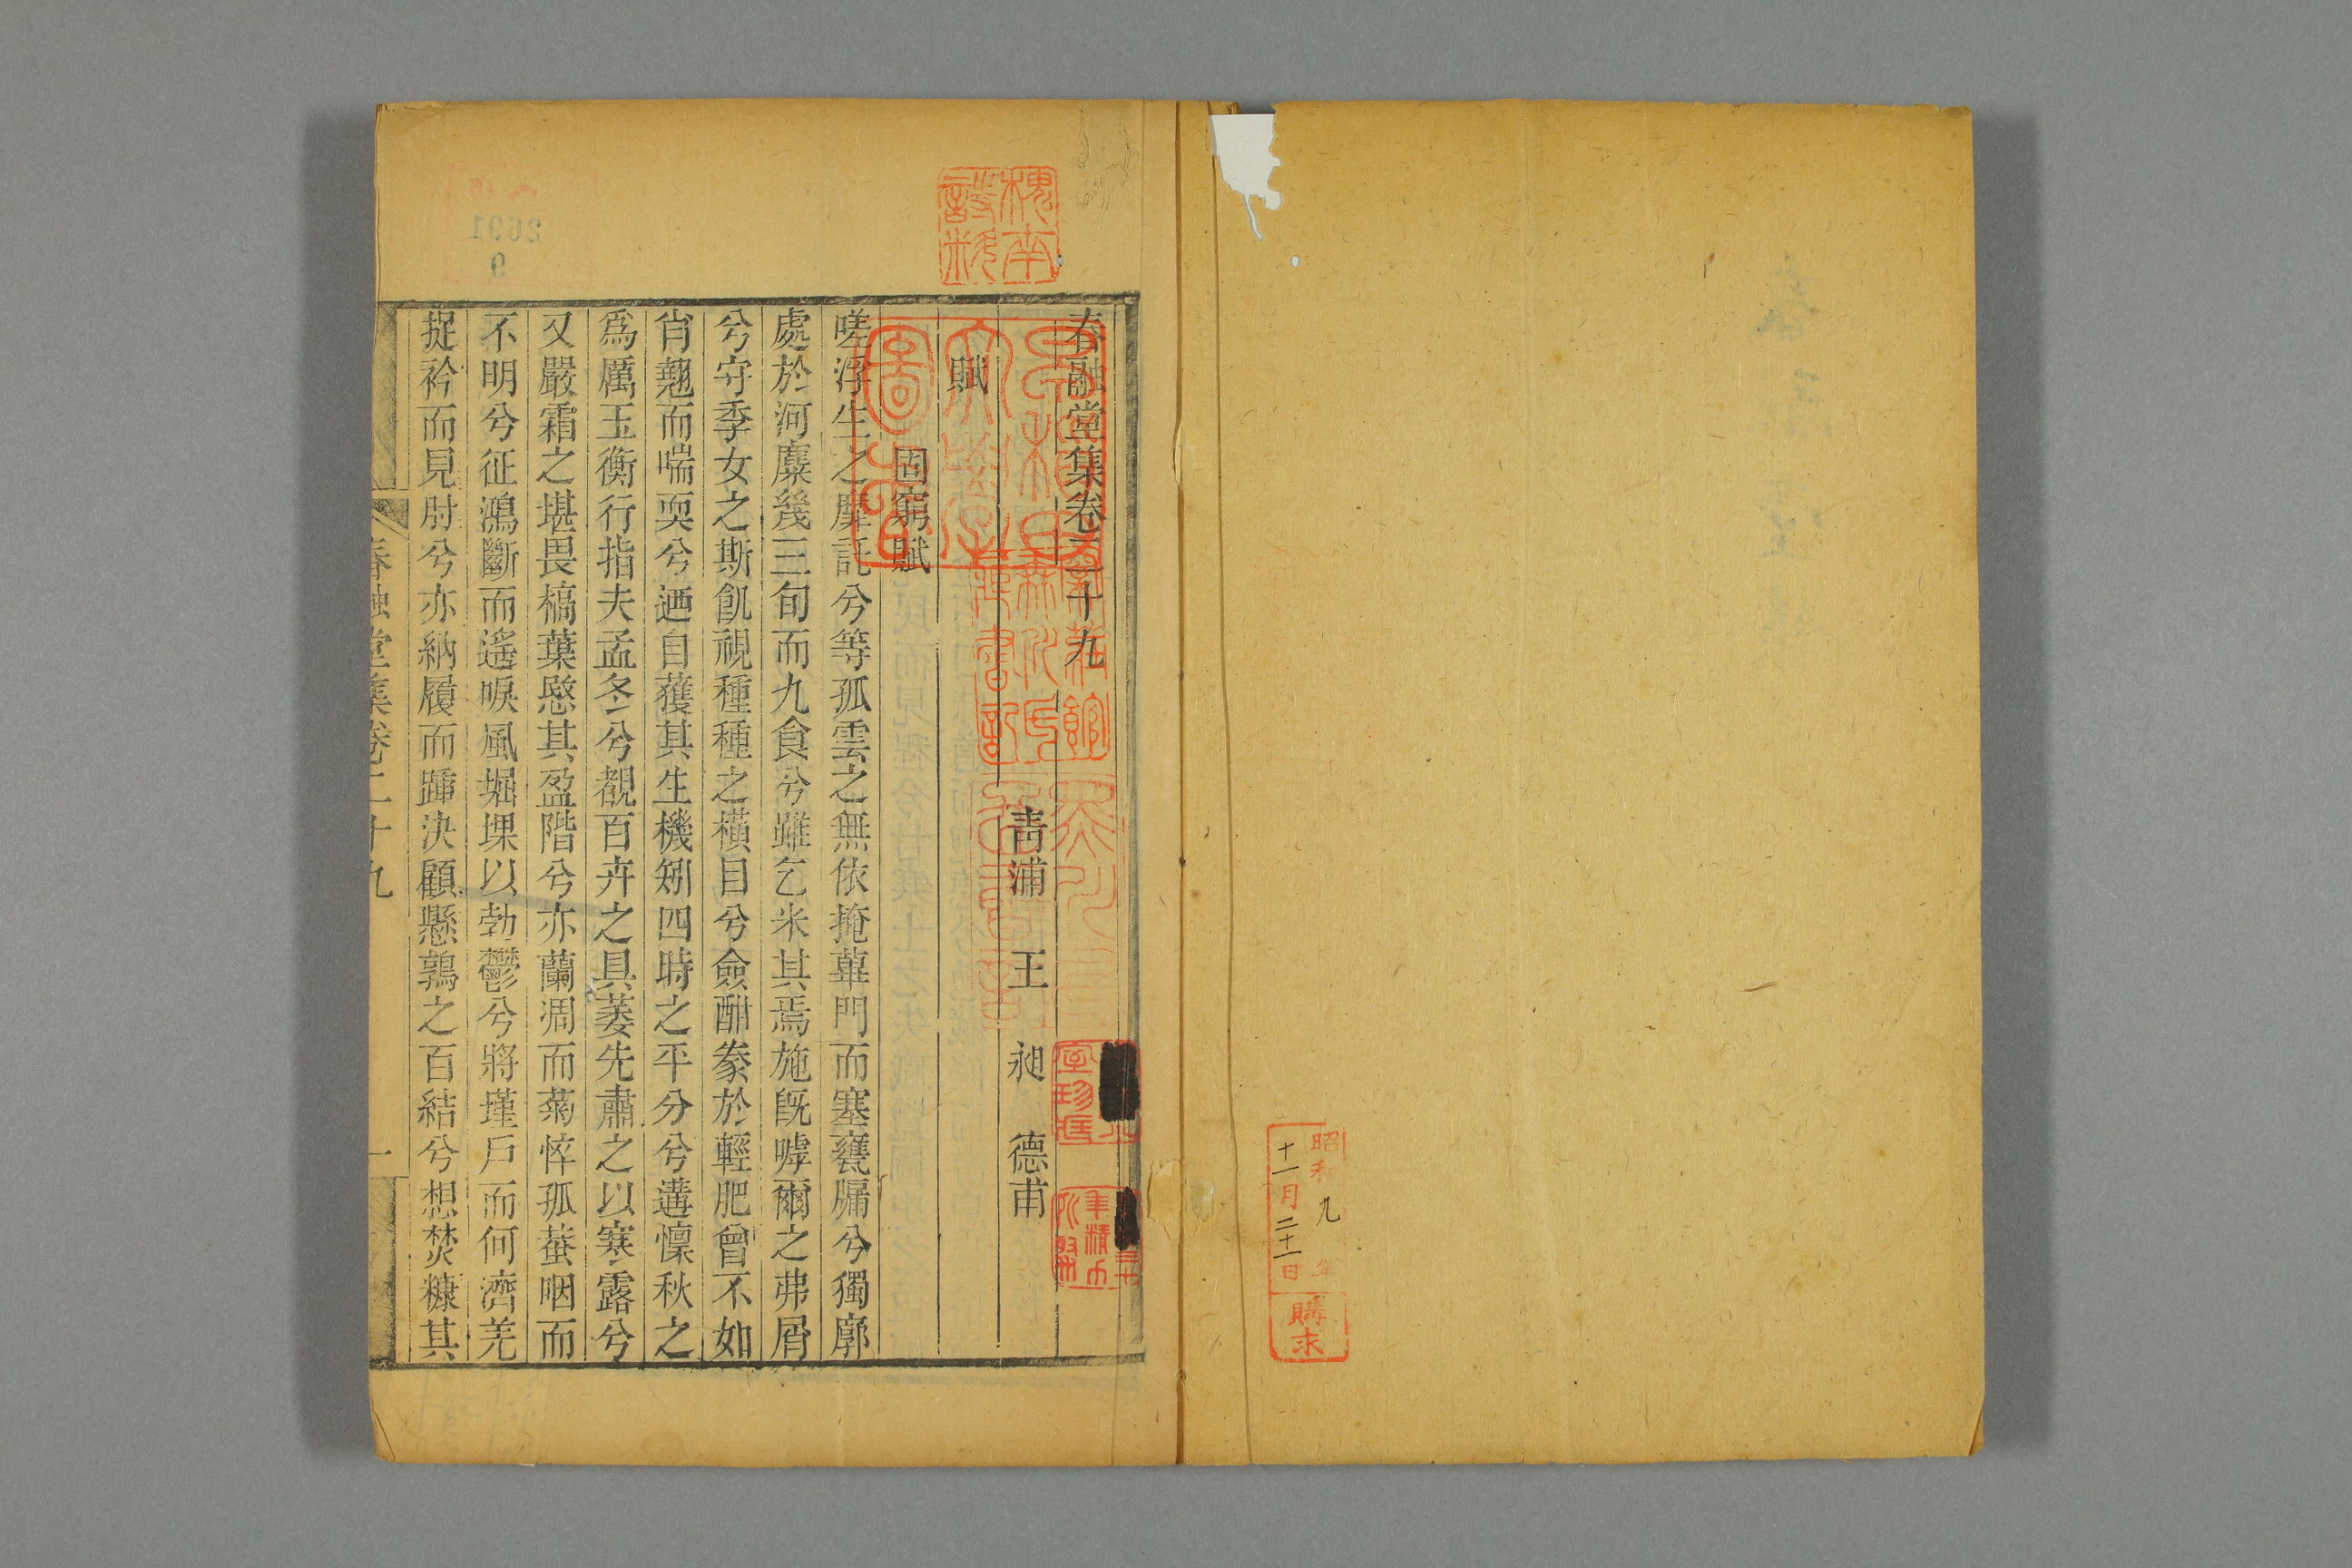 昭和九年
十一月二十一日
購求
槐南詩料
早稻田大學圖書
春融堂集卷二十九
青浦 王 昶 德甫
賦
固窮賦
嗟浮生之靡託兮等孤雲之無依掩蓽門而塞甕牖兮獨廓
處於河麋幾三旬而九食兮雖乞米其焉施既嘑爾之弗屑
兮守季女之斯飢視種種之橫目兮僉酣豢於輕肥曾不如
肖翹而喘耎兮迺自蒦其生機矧四時之平分兮遘懍秋之
爲厲玉衡行指夫孟冬兮覩百卉之具萎先肅之以寒露兮
又嚴霜之堪畏槁葉慇其盈階兮亦蘭凋而菊悴孤蛬咽而
不明兮征鴻斷而遙唳風堀堁以勃鬱兮將墐戶而何濟羌
捉衿而見肘兮亦納履而踵決顧懸鶉之百結兮想焚糠其
春融堂集卷二十九
一
2691
9